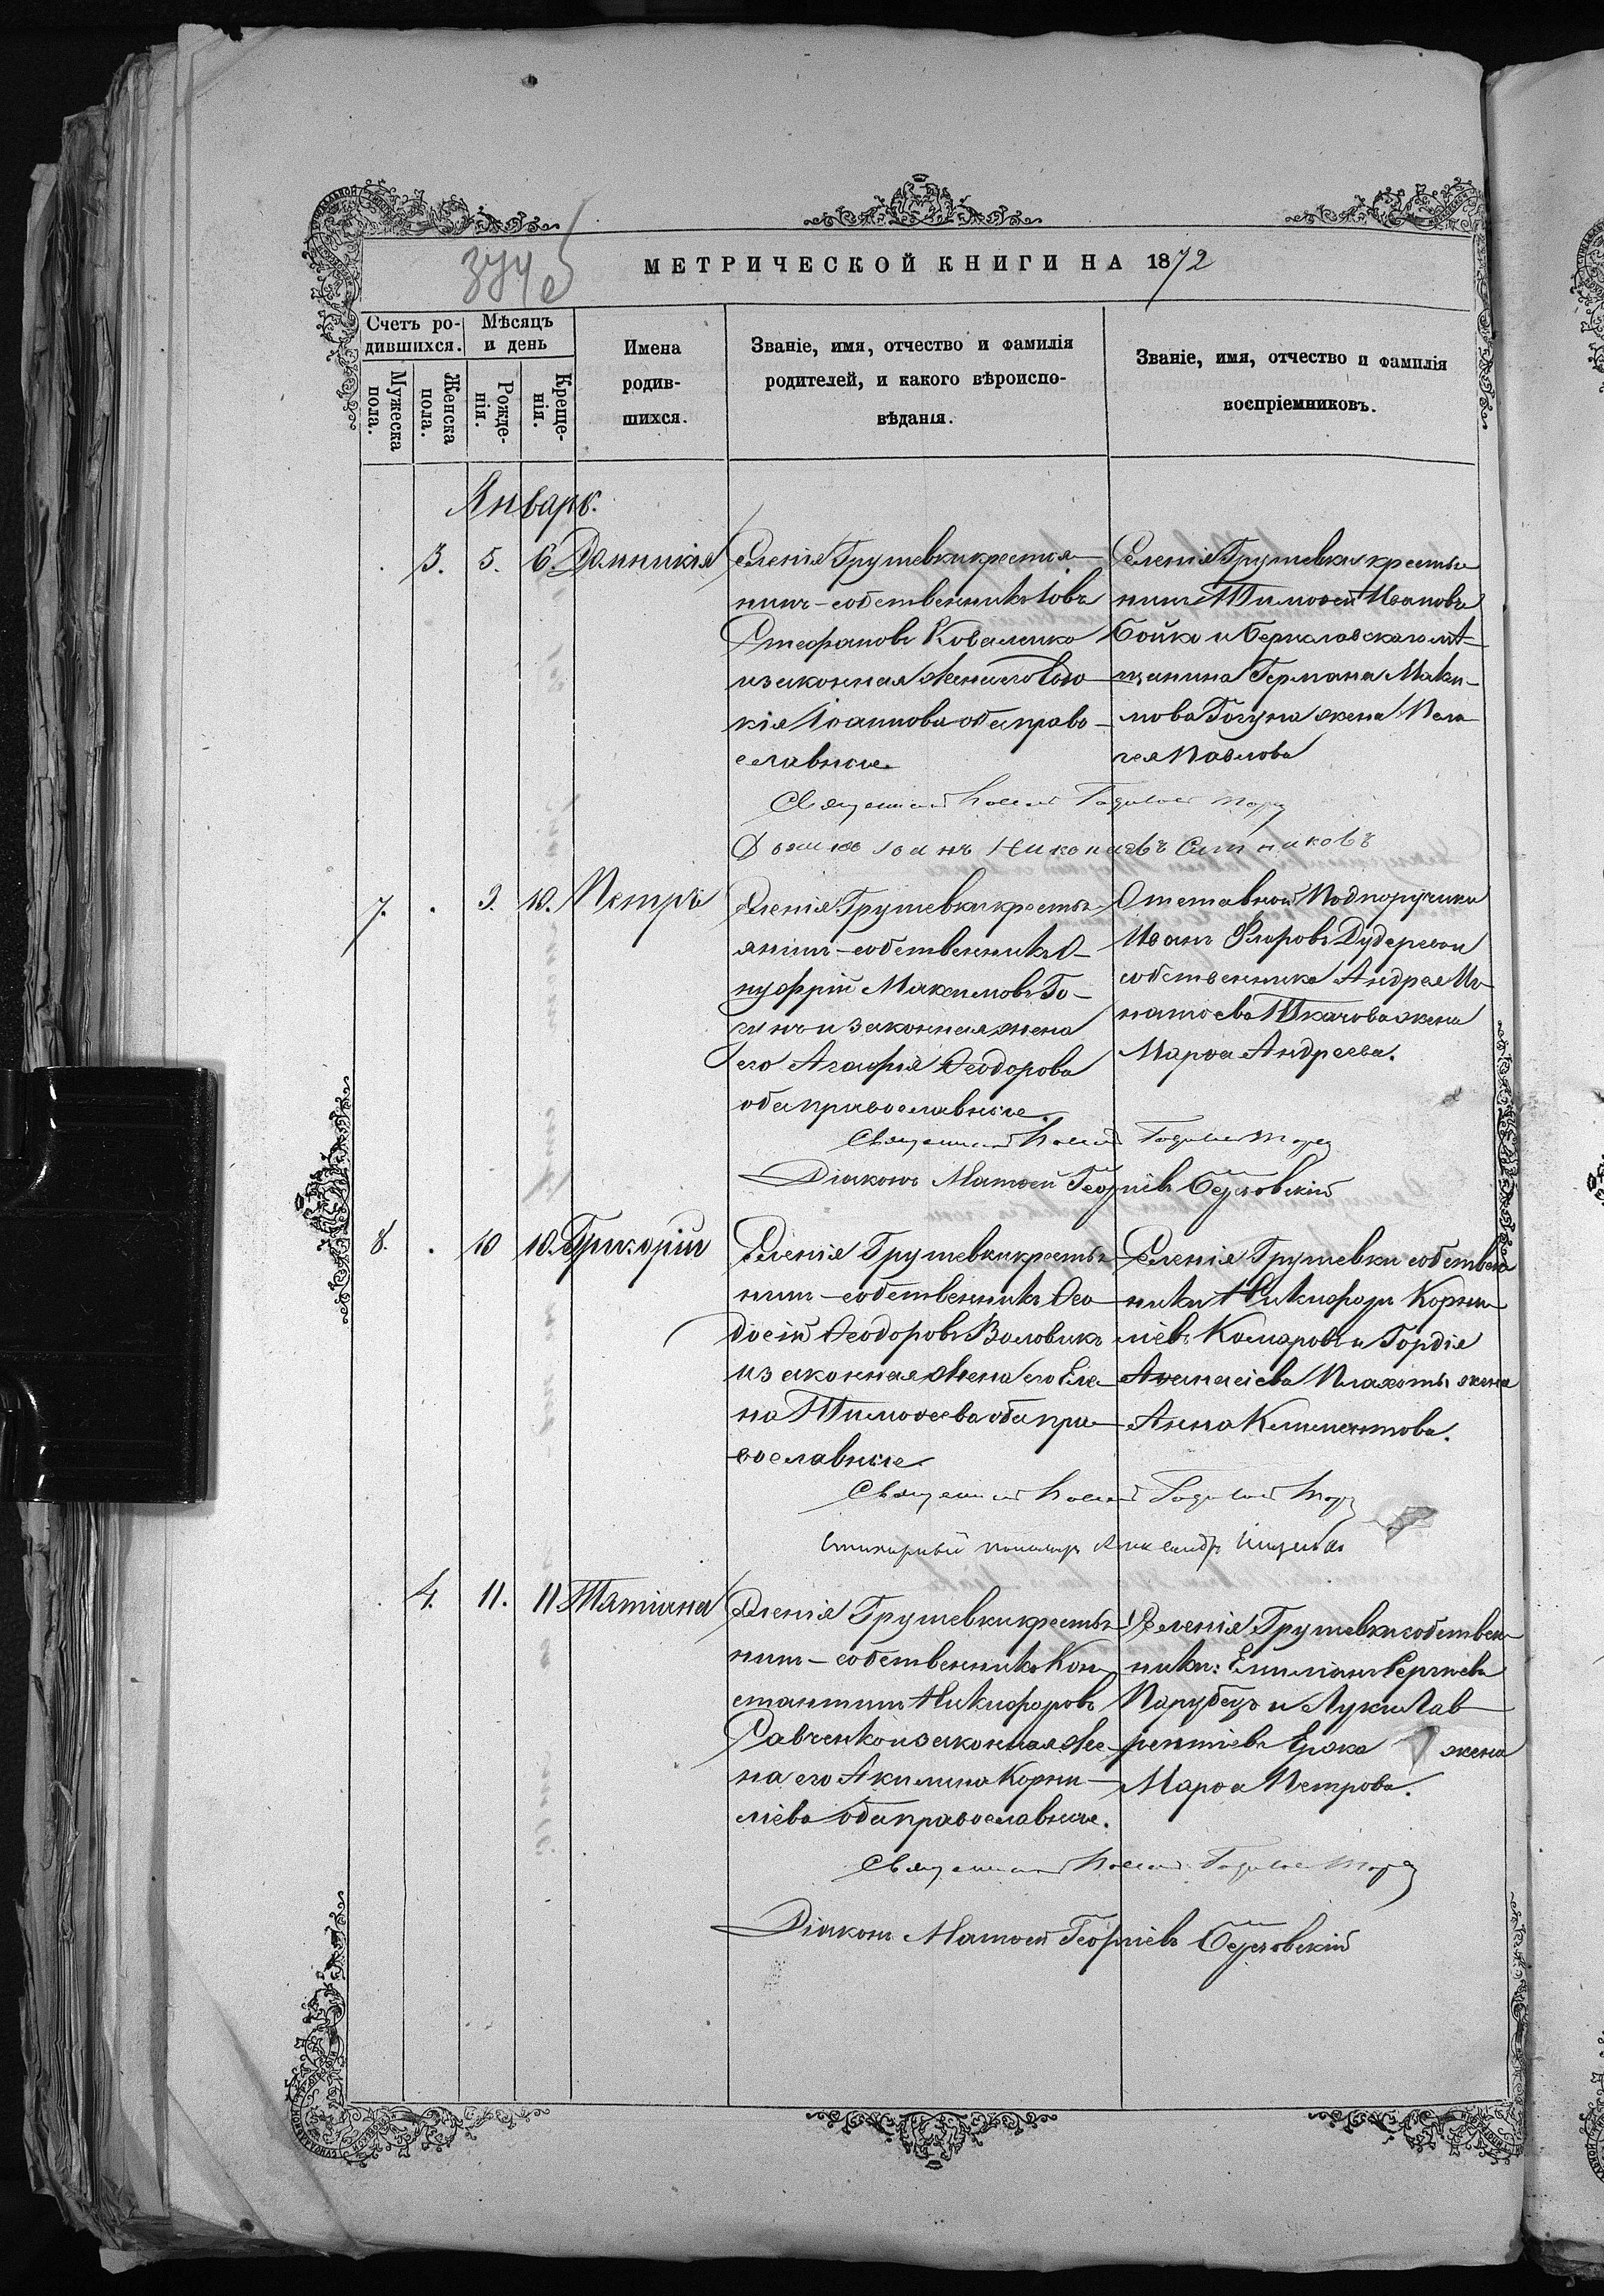 МЕТРИЧЕСКОЙ КНИГИ НА 1872
Счетъ ро-
дившихся.
Мѣсяцъ
и день
Мужеска
пола.
Женска
пола.
Рожде-
нія.
Креще-
нія.
Имена
родив-
шихся.
Званіе, имя, отчество и фамилія
родителей, и какого вѣроиспо-
вѣданія.
Званіе, имя, отчество и фамилія
воспріемниковъ.
Январь.
3. 5. 6. Домникія
Селенія Грушевки крестья-
нинъ-собственникъ Іовъ
Стефановъ Коваленко
и законная жена его Евдо-
кія Іоаннова оба право-
славные.
Селенія Грушевки крестья
нинъ Тимоѳей Ивановъ
Бойко и Бериславскаго мѣ-
щанина Германа Макси-
мова Гогуна жена Пела-
гея Павлова
Священникъ
Іоаннъ
7. 9. 10. Петръ
Селенія Грушевки кресть-
янинъ-собственникъ О-
нуфрій Максимовъ Го-
гунъ и законная жена
его Агафія Ѳеодорова
оба православные.
Отставной Подпоручикъ
Иванъ Флоровъ
собственника Андрея Иг-
натьева Ткачова жена
Марѳа Андреева.
Священникъ
Діаконъ Матѳей Георгіевъ
8. 10 10. Григорій
Селенія Грушевки кресть-
нинъ-собственникъ Ѳео-
досій Ѳеодоровъ Воловикъ
и законная жена его Еле-
на Тимоѳеева оба пра-
вославные.
Селенія Грушевки собствен
ники Никифоръ Корни-
ліевъ Комаровъ и Гордія
Аѳанасіева Плахоты жена
Анна Климентова.
Священникъ
4. 11. 11. Татіана
Селенія Грушевки кресть-
нинъ-собственникъ Кон-
стантинъ Никифоровъ
Савченко и законная же-
на его Акилина Корни-
ліева оба православные.
Селенія Грушевки собствен-
ники: Емиліанъ Сергіевъ
Парубецъ и Луки Лав-
рентіева Ержа жена
Марѳа Петрова.
Священникъ
Діаконъ Матѳей Георгіевъ